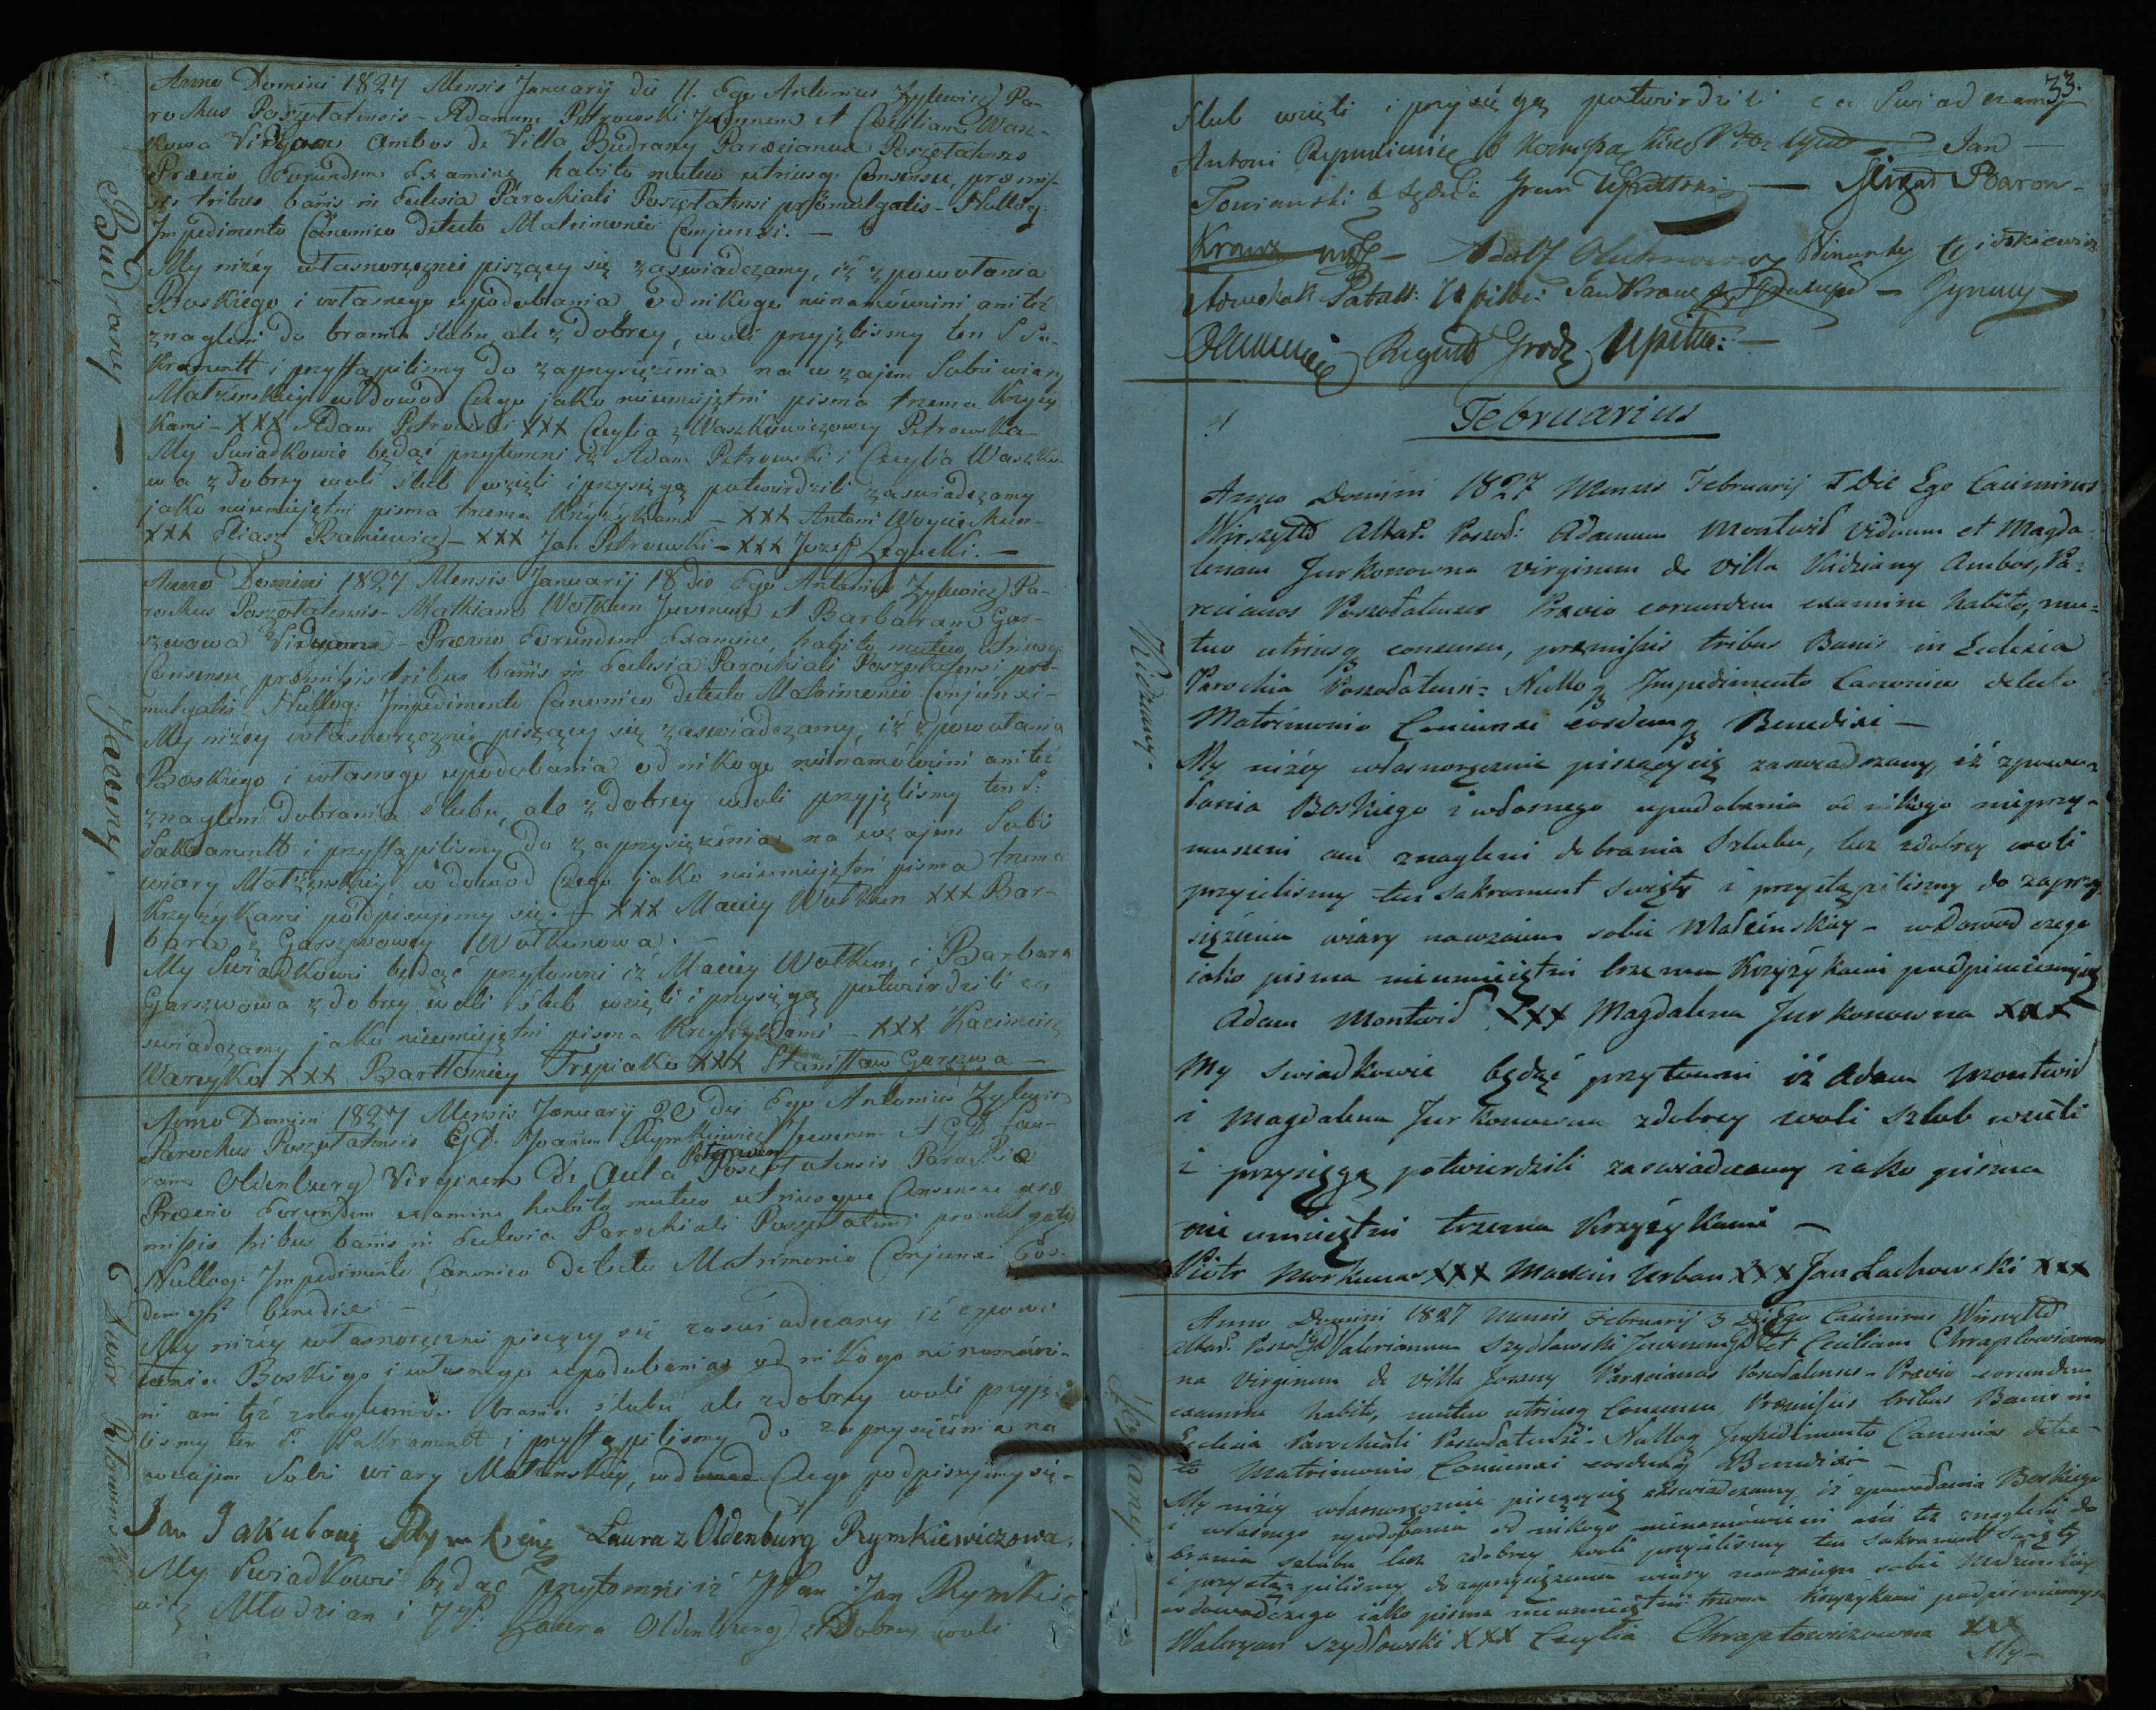 Budrany
Anno Domini 1827 Mensis Januarij die 11. Ego Antonius Zylewicz Pa-
rochus Poszołatensis - Adamum Petrowski Juvenem et Caeciliam Wasz-
kowa Viduam Ambos de Villa Budrany Paroecianus Poszołatenses
Praevio Eorundem Examine habito mutuo utriusq: Consensu, promis-
sis tribus banis in Eclesia Parochiali Poszołatensi promulgatis - Nulloq:
Impedimento Canonico detecto Matrimonio Conjunxi. —
My niżey własnoręcznie piszący się zaswiadczamy, iż z powołania
Boskiego i własnego upodobania od nikogo nienamówieni ani też
znagleni do brania slubu, ale z dobrey woli przyjęlismy ten S Sa-
krament i przystąpilismy do zaprzysiężenia na wzajem Sobie wiary
Małżenskiey w dowod Czego jako nieumiejętni pisma trzema Krzyży
Kami - XXX Adam Petrowski XXX Cecylia z Waszkowiczowey Petrowska -
My Swiadkowie będąc przytomni iż Adam Petrowski i Cecylia Waszko-
wa z dobrey woli slub wzięli i przysięgą potwierdzili zaswiadczamy
jako nieumiejętni pisma trzema Krzyżykami - XXX Antoni Woycie
XXX Eliasz Baniewicz - XXX Jan Petrowski - XXX Jozef —
Jaciuny.
Anno Domini 1827 Mensis Januarij 18 die Ego Antonius Zylewicz Pa-
rochus Poszołatensis - Mathiam Wołkun Juvenem et Barbaram Gar-
szwowa Viduam - Praevio Eorundem Examine, habito mutuo utriusq:
Consensu promissis tribus banis in Eclesia Parochiali Poszołatensi pro-
mulgatis Nulloq: Impedimento Canonico detecto Matrimonio Conjunxi -
My niżey własnoręcznie piszący się zaswiadczamy, iż z powołania
Boskiego i własnego upodobania od nikogo nienamówieni ani też
znagleni do brania slubu, ale z dobrey woli przyjęlismy ten S:
Sakrament i przystąpilismy do zaprzysiężenia na wzajem Sobie
wiary Małżenskiey w dowod Czego jako nieumiejętni pisma trzema
Krzyżykami podpisujemy się. - XXX Maciey Wołkun XXX Bar-
bara z Garszwowey Wołkunowa. -
My Swiadkowie będąc przytomni iż Maciey Wołkun i Barbara
Garszwowa z dobrey woli slub wzięli i przysięgą potwierdzili za
swiadczamy jako nieumiejętni pisma Krzyżykami XXX Kazimierz
XXX Bartłomiey Trepiako XXX Stanisław Garszwa —
Dwór
Anno Domini 1827 Mensis Januarij 20 die Ego Antonius Zylewicz
Parochus Poszołatensis GD: Joanem Rymkiewicz Juvenem et GD Lau-
ram Oldenburg Virginem de Aula Poszołatensis Parochiae
Praevio Eorundem examine habito mutuo utriusque Consensu prae
missis tribus banis in Eclesia Parochiali Poszołatensi promulgatis
Nulloq: Impedimento Canonico detecto Matrimonio Conjunxi Eos-
demq: benedixi —
My niżey własnoręcznie piszący się zaswiadczamy iż z powo
łania Boskiego i własnego upodobania od nikogo nienamówie-
ni ani też znagleni do brania slubu ale z dobrey woli przyję-
lismy ten S. Sakrament i przystąpilismy do zaprzysiężenia na
wzajem Sobie wiary Małżenskiey, w dowod Czego podpisujemy się -
Jan Rymkiewicz Laura z Oldenburg Rymkiewiczowa.
My Swiadkowie będąc przytomni iż JPan Jan Rymkie
wicz Młodzian i JP. Laura Oldenburg z Dobrey woli
33.
Slub wzięli i przysięgą potwierdzili za Swiadczamy
Antoni Rymkiewicz — Jan —
Towianski — Baron -
Adolf
Jan
Upitte: —
Februarius
Kidziany.
Anno Domini 1827 Mensis Februarij 1 Die Ego Casimirus
Wirszyłło Altar. Poszoł: Adamum Montwid Viduum et Magda-
lenam Jurkonowna virginem de villa Kidziany Ambos, Pa-
recianos Poszołatenses Praevio eorundem examine habito, mu-
tuo utriusq consensu, praemissis tribus Banis in Ecclesia
Parochia Poszołatensi Nulloq Impedimento Canonico detecto
Matrimonio Conjunxi eosdemq Benedixi —
My niżéy własnoręcznie piszący się zaswiadczamy, iż z powo-
łania Boskiego i własnego upodobania od nikogo nieprzy-
muszeni ani znagleni do brania Szlubu, lecz z dobrey woli
przyielismy ten sakrament swięty i przystąpilismy do zaprzy
siężenia wiary nawzaiem sobie Małżenskiey - w Dowod czego
iako pisma nieumieiętni trzema Krzyżykami podpisuiemy się
Adam Montwid XXX Magdalena Jurkonowna XXX
My swiadkowie będąc przytomni iż Adam Montwid
i Magdalena Jurkonowna z dobrey woli Szlub wzieli
i przysięgą potwierdzili zaswiadczamy iako pisma
nie umieiętni trzema Krzyżykami —
Piotr Morkunas XXX Marcin Urban XXX Jan Lachowski XXX
Anno Domini 1827 Mensis Februarij 3 Die Ego Casimirus Wirszyłło
Altar. Poszoł GD Valerianum Szydłowski Juvenem GD et Ceciliam Chrapłowiczow
na virginem de villa Parecianos Poszołatenses - Praevio eorundem
examine habito, mutuo utriusq Consensu Praemissis tribus Banis in
Eclesia Parochiali Poszołatensi - Nulloq Impedimento Canonico detec-
to Matrimonio Conjunxi eosdemq Benedixi -
My niżéy własnoręcznie piszący się zaswiadczamy iż z powołania Boskiego
i własnego upodobania od nikogo nienamówieni ani też znagleni do
brania szlubu lecz z dobrey woli przyielismy ten sakrament swięty
i przystąpilismy do zaprzysiężenia wiary nawzaiem sobie Małżenskiey
w dowod czego iako pisma nieumieiętni trzema Krzyżykami podpisuiemy się
Waleryan Szydłowski XXX Cecylia Chrapłowiczowna XXX
My -